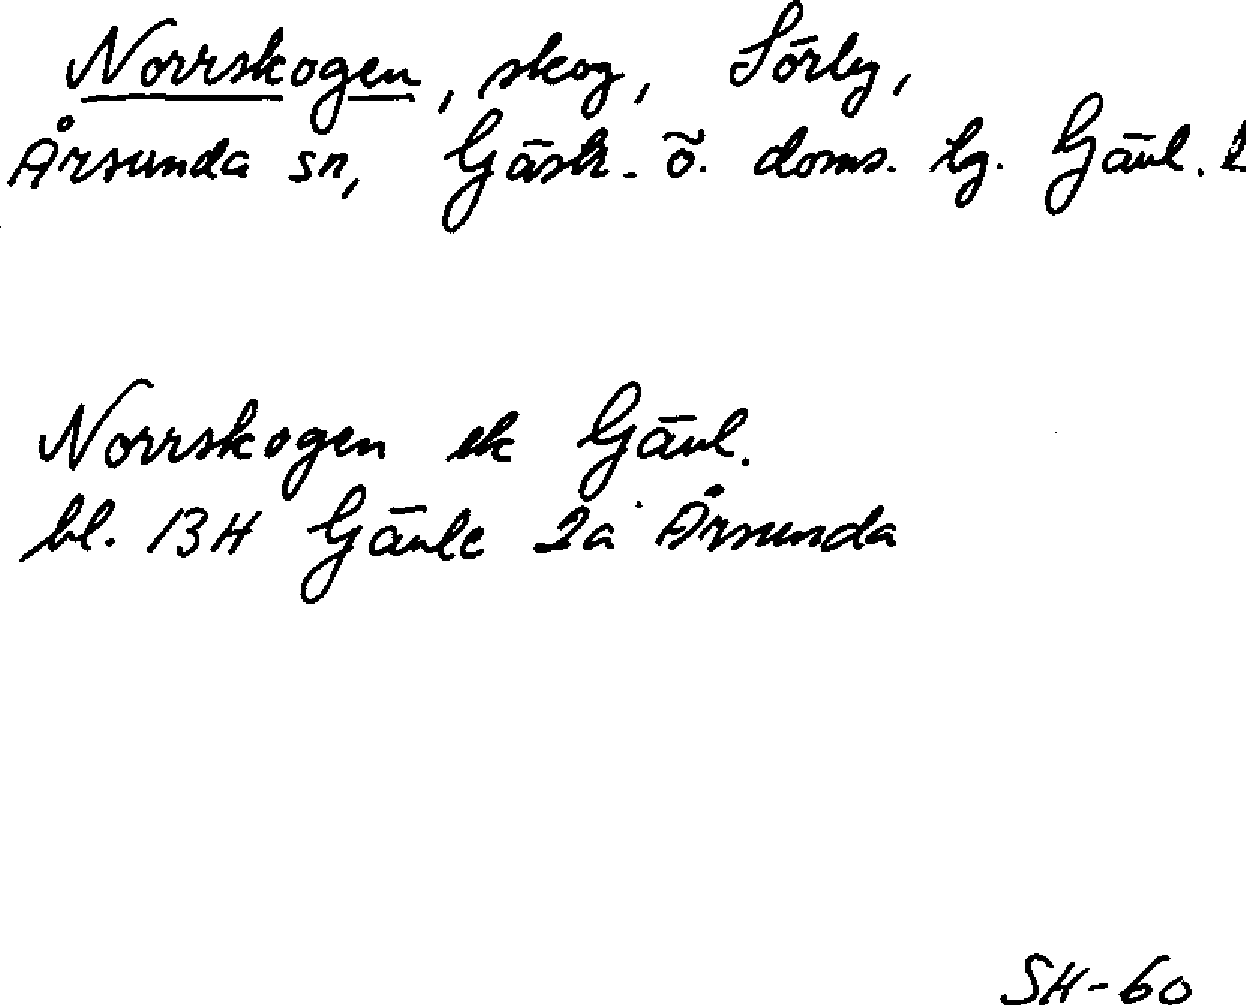 Norrskogen, skog, Sörby,
Årsunda sn, Gästr. ö. doms. lg. Gävl. l
Norrskogen ek Gävl.
bl. 13H Gävle 2a Årsunda
SH-60